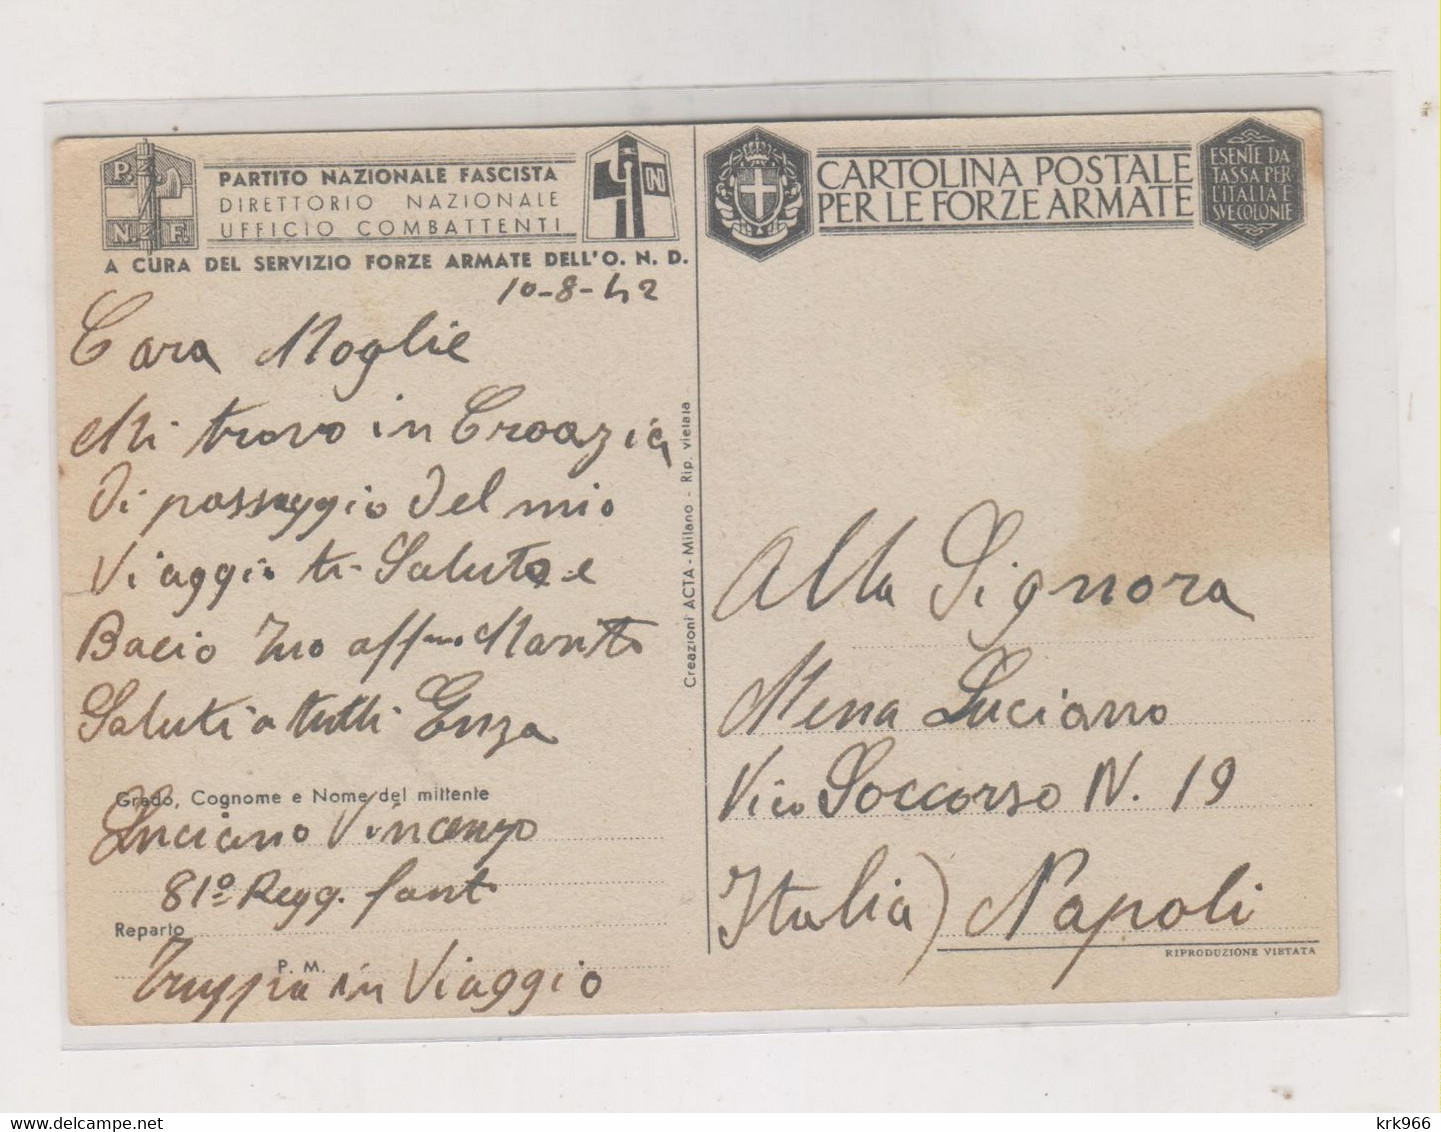 P.
N. F.
PARTITO NAZIONALE FASCISTA
DIRETTORIO NAZIONALE
UFFICIO COMBATTENTI
OND
A CURA DEL SERVIZIO FORZE ARMATE DELL'O. N. D.
10-8-42
Cara Moglie
Mi trovo in Croazia
di passaggio del mio
viaggio ti Saluto e
Bacio Tuo affmo Marito
Saluti a tutti Enza
Grado, Cognome e Nome del mittente
Luciano Vincenzo
81º Regg. fant
Reparto
P. M.
Truppa in Viaggio
Creazioni ACTA - Milano - Rip. vietata
CARTOLINA POSTALE
PER LE FORZE ARMATE
ESENTE DA
TASSA PER
L'ITALIA E
SVE COLONIE
Alla Signora
Mena Luciano
Vico Soccorso N. 19
Italia) Napoli
RIPRODUZIONE VIETATA
krk966